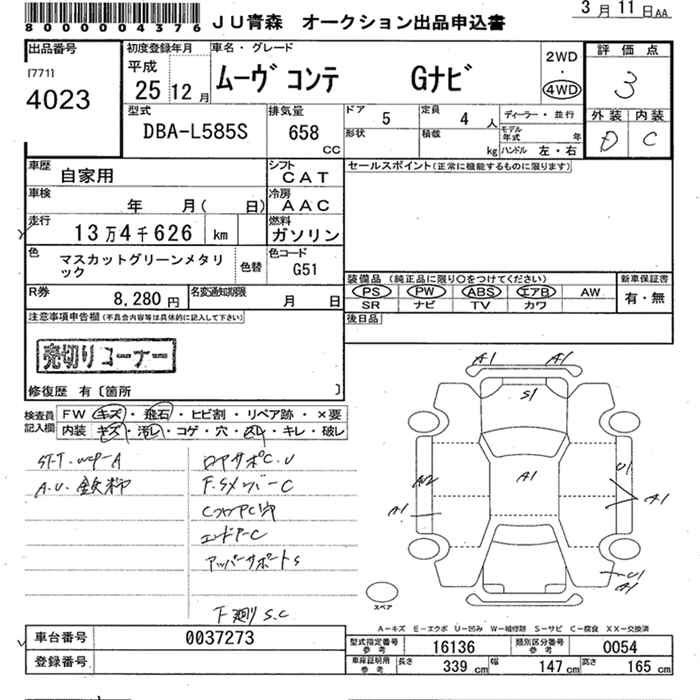 3月11日AA
80000004376
JU青森 オークション出品申込書
出品番号
[771]
4023
初度登録年月
平成
25 12月
車名・グレード
ムーヴ コンテ Gナビ
2WD
・
4WD
評価点
3
外装 内装
D C
型式
DBA-L585S
排気量
658
CC
ドア 5
定員 4人
ディーラー・並行
形状
積載 kg
モデル年式 年
ハンドル 左・右
車歴 自家用
シフト CAT
セールスポイント(正常に機能するものに限ります)
車検 年 月( 日)
冷房 AAC
走行 13万4千626 km
燃料 ガソリン
色 マスカットグリーンメタリ
ック
色替
色コード G51
装備品 (純正品に限り○をつけてください)
新車保証書
PS PW ABS エアB AW
有・無
SR ナビ TV カワ
R券 8,280円
名変通知期限 月 日
後日品
注意事項申告欄(不具合内容等は具体的に記入して下さい)
売切りコーナー
修復歴 有〔箇所 〕
検査員
記入欄
FW キズ・飛石・ヒビ割・リペア跡・×要
内装 キズ・汚レ・コゲ・穴・スレ・キレ・破レ
ロアサポC.U
F.SメンバーC
エンドアーC
アッパーサポートS
F廻りS.C
A1 A1
S1
A1
A2 U1
A1 A1
U1
A1
スペア
A-キズ E-エクボ U-凹み W-補修跡 S-サビ C-腐食 XX-交換済
車台番号 0037273
登録番号
型式指定番号
参考
16136
類別区分番号
参考
0054
車庫証明用
参考
長さ 339cm 幅 147cm 高さ 165cm